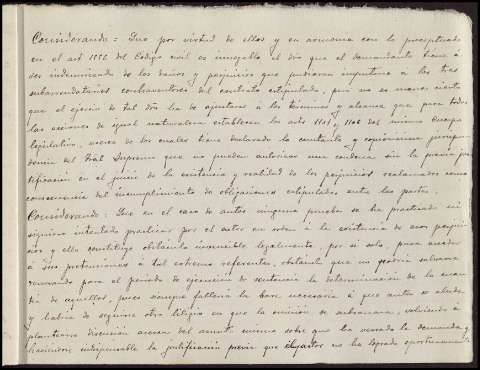 Considerando: Que por virtud de ellos y en armonía con lo preceptuado
en el artº 1552 del Código civil es innegable el dro que el demandante tiene á
ser indemnizado de los daños y perjuicios que pudieran imputarse á los tres
subarrendatarios contraventores del contrato estipulado, pero no es menos cierto
que el ejercicio de tal dro ha de ajustarse á los términos y alcance que para todas
las acciones de igual naturaleza establecen los artos 1101 y 1106 del mismo Cuerpo
legislativo, acerca de los cuales tiene declarado la constante y jurispru
dencia del Tral Supremo que no pueden autorizar una condena sin la previa jus
tificación en el juicio de la existencia y realidad de los perjuicios reclamados como
consecuencia del incumplimiento de obligaciones estipuladas entre las partes.
Considerando: Que en el caso de autos ninguna prueba se ha practicado ni
siquiera intentado practicar por el actor en orden á la existencia de esos perjui
cios y ello constituye obstáculo invencible legalmente, por si solo, para acceder
á sus pretensiones á tal extremo referentes, obstáculo que no podría salvarse
reservando para el periodo de ejecución de sentencia la determinación de la cuan
tía de aquellos, pues siempre faltaría la base necesaria á que antes se alude
y habría de seguirse otro litigio en que la omisión se subsanara, volviendo á
plantearse discusión acerca del asunto mismo sobre que ha versado la demanda y
haciéndose indispensable la justificación previa que el actor no ha logrado oportunamente